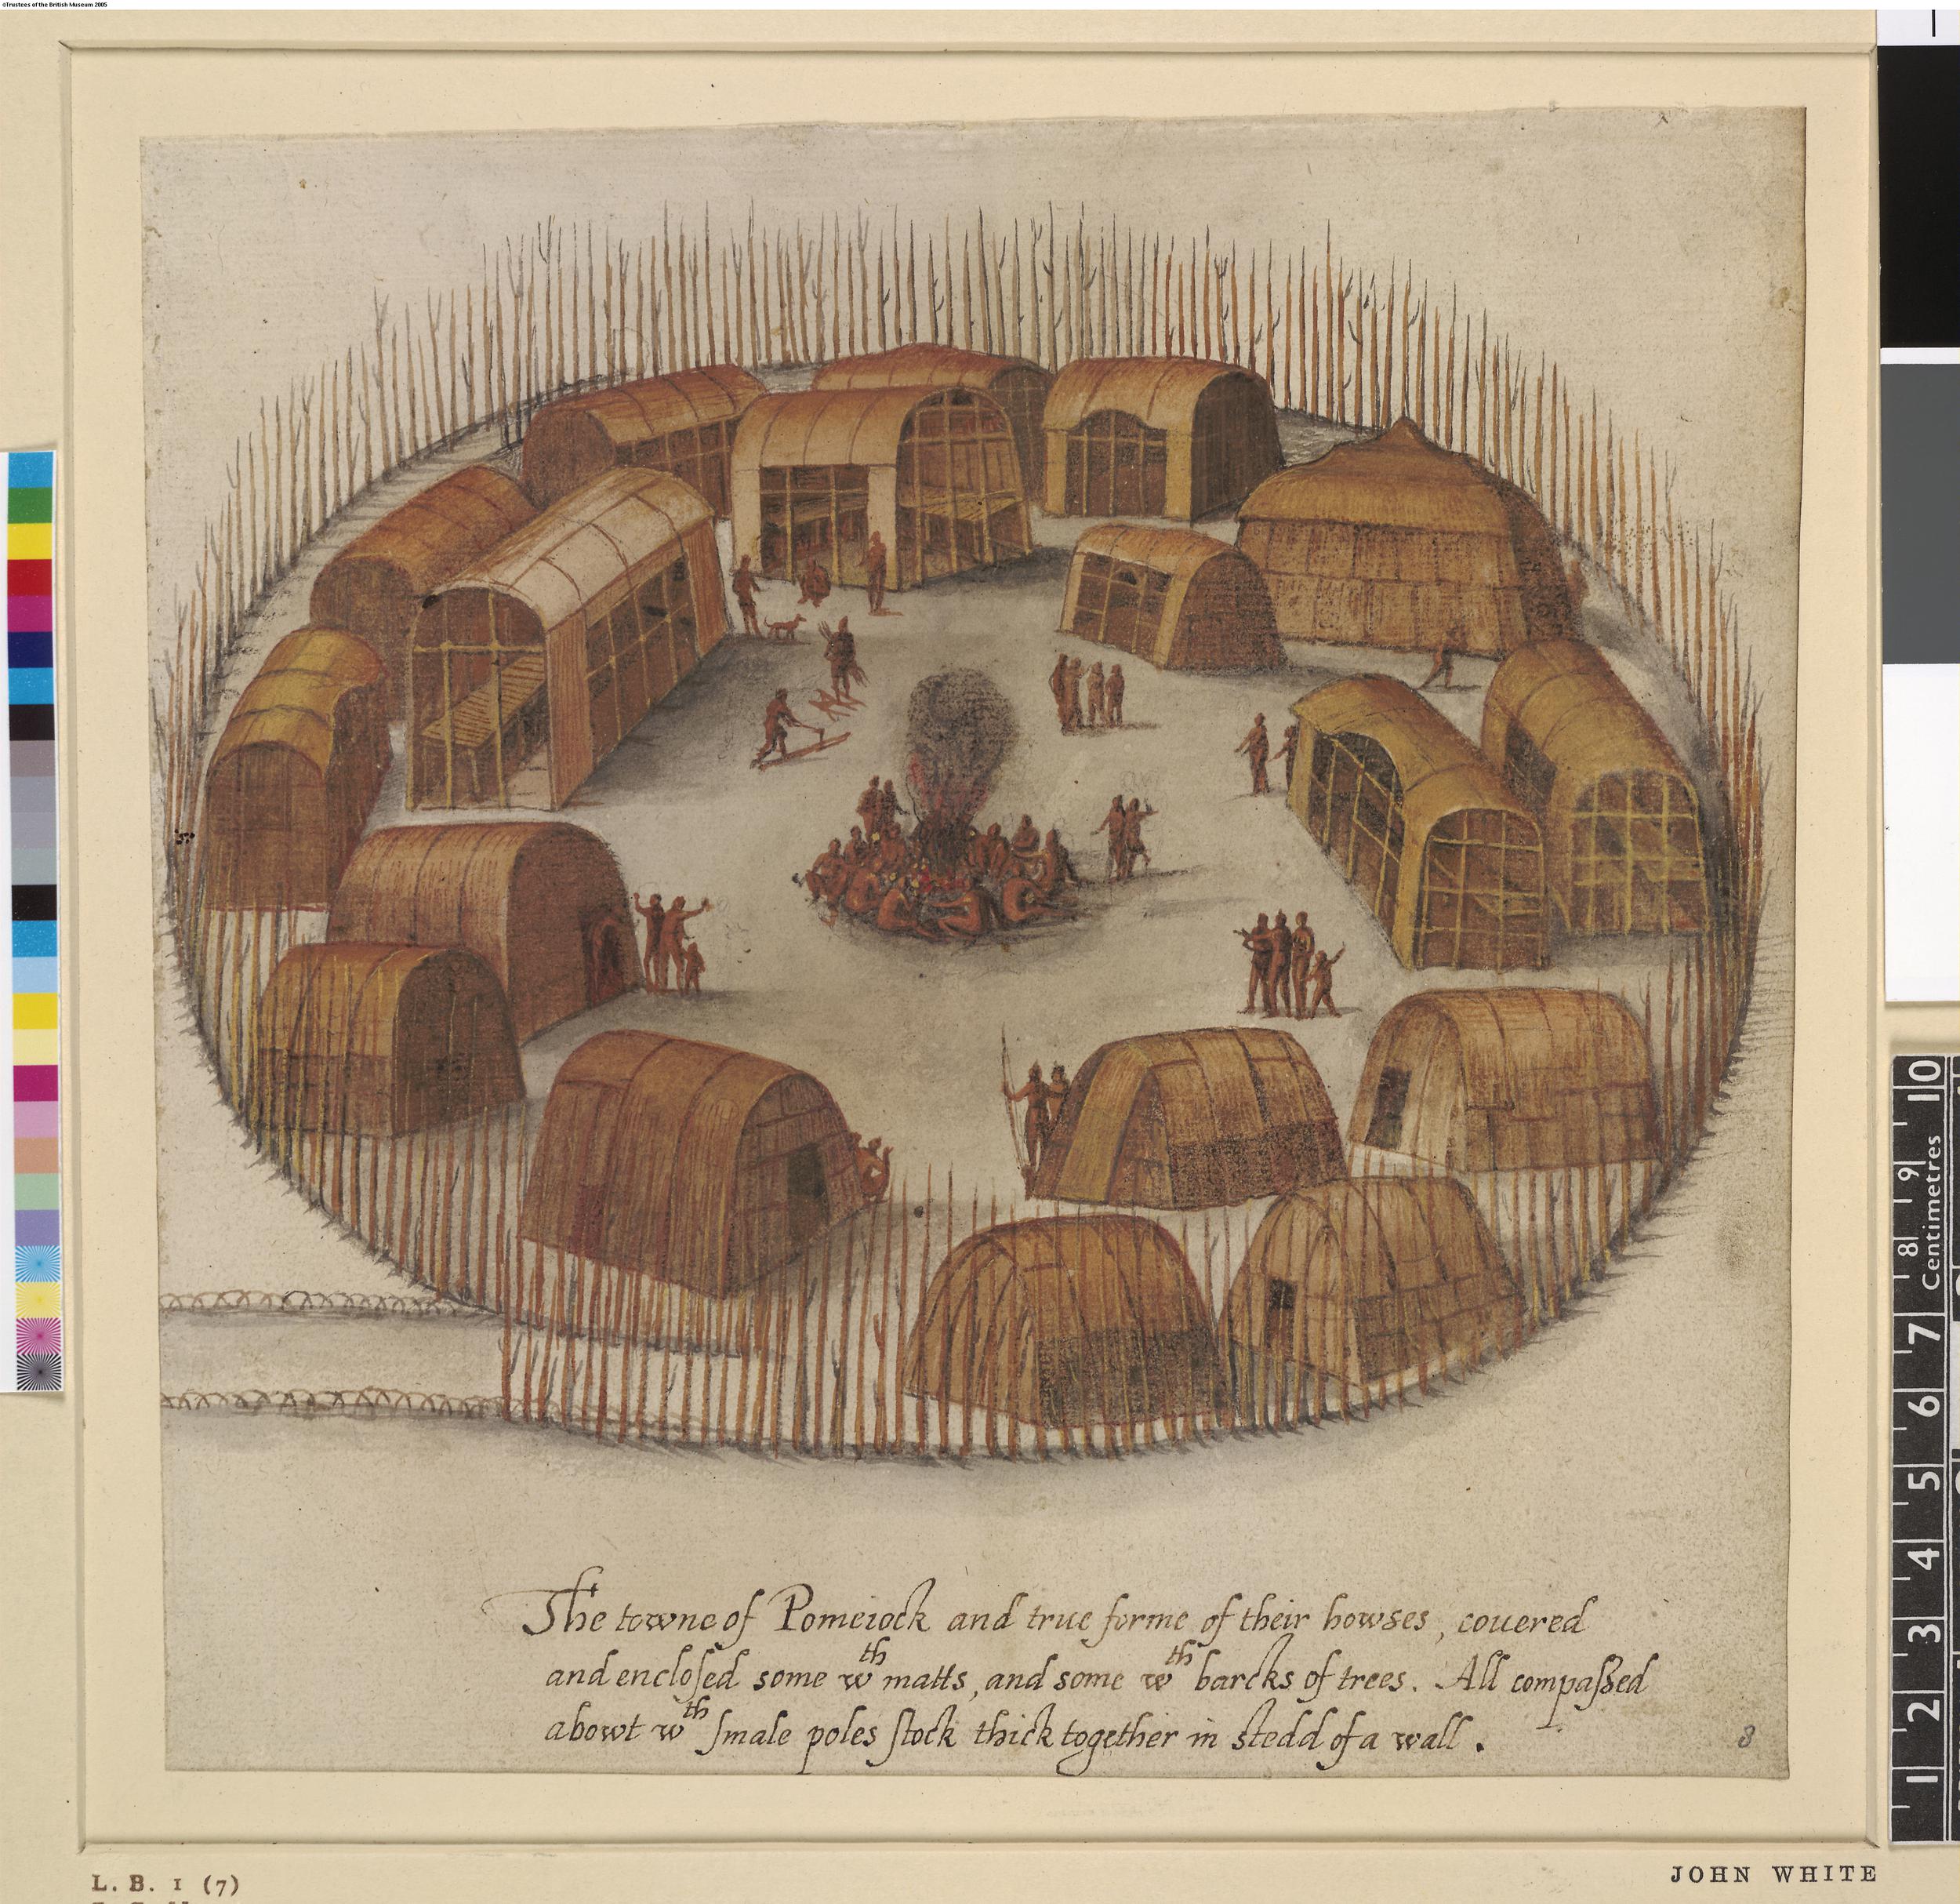 ©Trustees of the British Museum 2005
The towne of Pomeiock and true forme of their howses, couered
and encloſed some wth matts, and some wth barcks of trees. All compaſsed
abowt wth ſmale poles ſtock thick together in stedd of a wall.
8
L. B. 1 (7)
JOHN WHITE
10
9
8
7
6
5
4
3
2
1
Centimetres